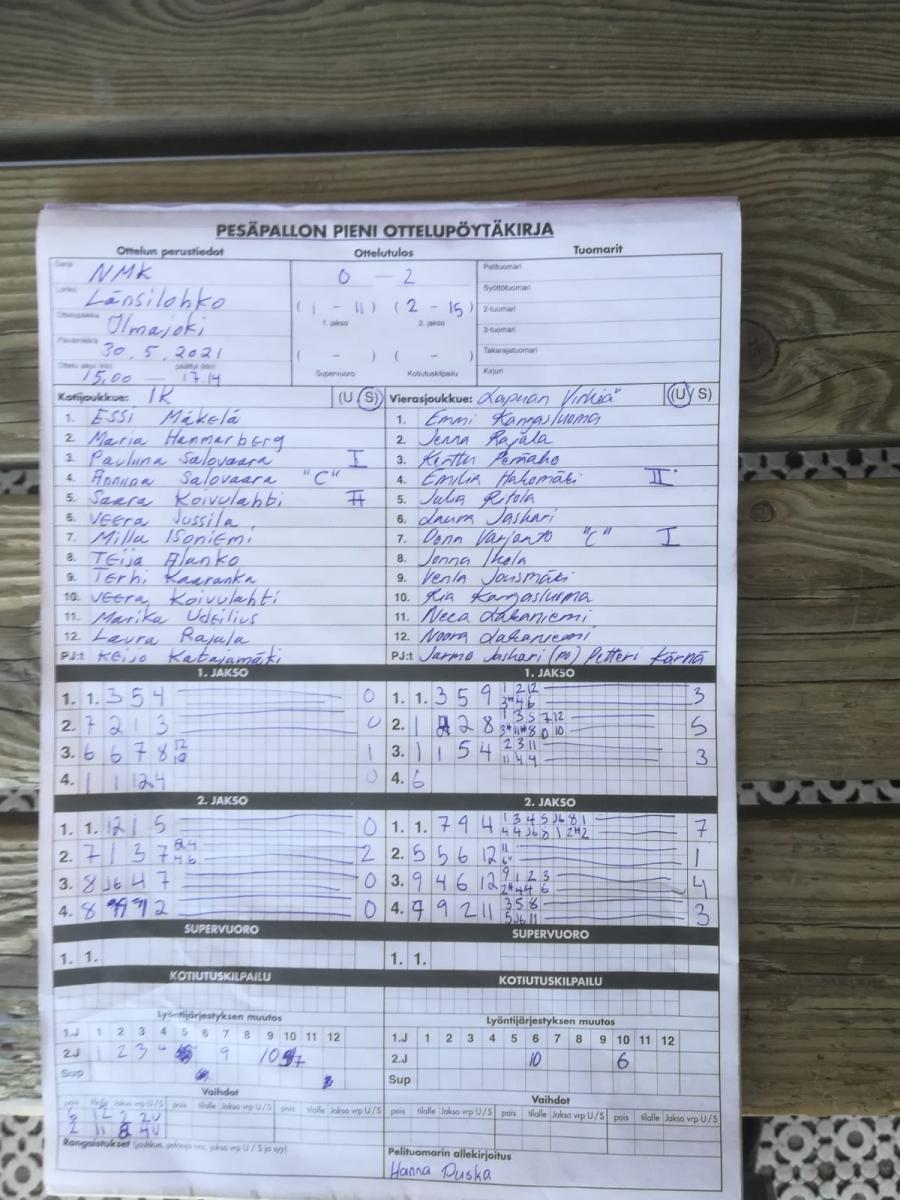 PESÄPALLON PIENI OTTELUPÖYTÄKIRJA
Ottelun perustiedot Ottelutulos Tuomarit
Sarja NMK
Lohko Länsilohko
Ottelupaikka Ilmajoki
Päivämäärä 30.5.2021
Ottelu alkoi (klo) päättyi (klo)
15.00 — 17.14
0 — 2
( 1 - 11 ) ( 2 - 15 )
1. jakso 2. jakso
( - ) ( - )
Supervuoro Kotiutuskilpailu
Pelituomari
Syöttötuomari
2-tuomari
3-tuomari
Takarajatuomari
Kirjuri
Kotijoukkue: IK (U S)
1. Essi Mäkelä
2. Maria Hammarberg
3. Pauliina Salovaara I
4. Anniina Salovaara "C"
5. Saara Koivulahti II
6. Veera Jussila
7. Milla Isoniemi
8. Teija Alanko
9. Terhi Kaaranka
10. Veera Koivulahti
11. Marika Udelius
12. Laura Rajala
PJ:t Keijo Katajamäki
Vierasjoukkue: Lapuan Virkiä" (U S)
1. Emmi Kangasluoma
2. Jenna Rajala
3. Kerttu Peräaho
4. Emilia Hakomäki II
5. Julia Ritola
6. Laura Jaskari
7. Oona Varjanto "C" I
8. Jonna Ikola
9. Venla Jousmäki
10. Ria Kangasluoma
11. Neea Lakaniemi
12. Noora Lakaniemi
PJ:t Jarmo Jaskari (PO) Petteri Kärnä
1. JAKSO
1. 1. 3 5 4 0
2. 7 2 1 3 0
3. 6 6 7 8 12 10 1
4. 1 1 12 4 0
1. JAKSO
1. 1. 3 5 9 1 2 12 3" 4 6 3
2. 1 2 8 1 3 5 7 12 5
3. 1 1 5 4 2 3 11 11 4 9 3
4. 6
2. JAKSO
1. 1. 12 1 5 0
2. 7 1 3 7 2
3. 8 J6 4 7 0
4. 8 2 0
2. JAKSO
1. 1. 7 9 4 1 3 4 5 J6 8 1 7
2. 5 5 6 12 11 1
3. 9 4 6 12 9 1 2 3 4
4. 7 9 2 11 3 5 8 5 J6 11 3
SUPERVUORO
1. 1.
SUPERVUORO
1. 1.
KOTIUTUSKILPAILU
KOTIUTUSKILPAILU
Lyöntijärjestyksen muutos
1.J 1 2 3 4 5 6 7 8 9 10 11 12
2.J 1 2 3 4 9 10 7
Sup
Lyöntijärjestyksen muutos
1.J 1 2 3 4 5 6 7 8 9 10 11 12
2.J 10 6
Sup
Vaihdot
pois tilalle Jakso vrp U/S pois tilalle Jakso vrp U/S pois tilalle Jakso vrp U/S
2 11 2 4U
Vaihdot
pois tilalle Jakso vrp U/S pois tilalle Jakso vrp U/S pois tilalle Jakso vrp U/S
Rangaistukset (joukkue, pelaaja nro, jakso vrp U/S ja syy)
Pelituomarin allekirjoitus
Hanna Puska